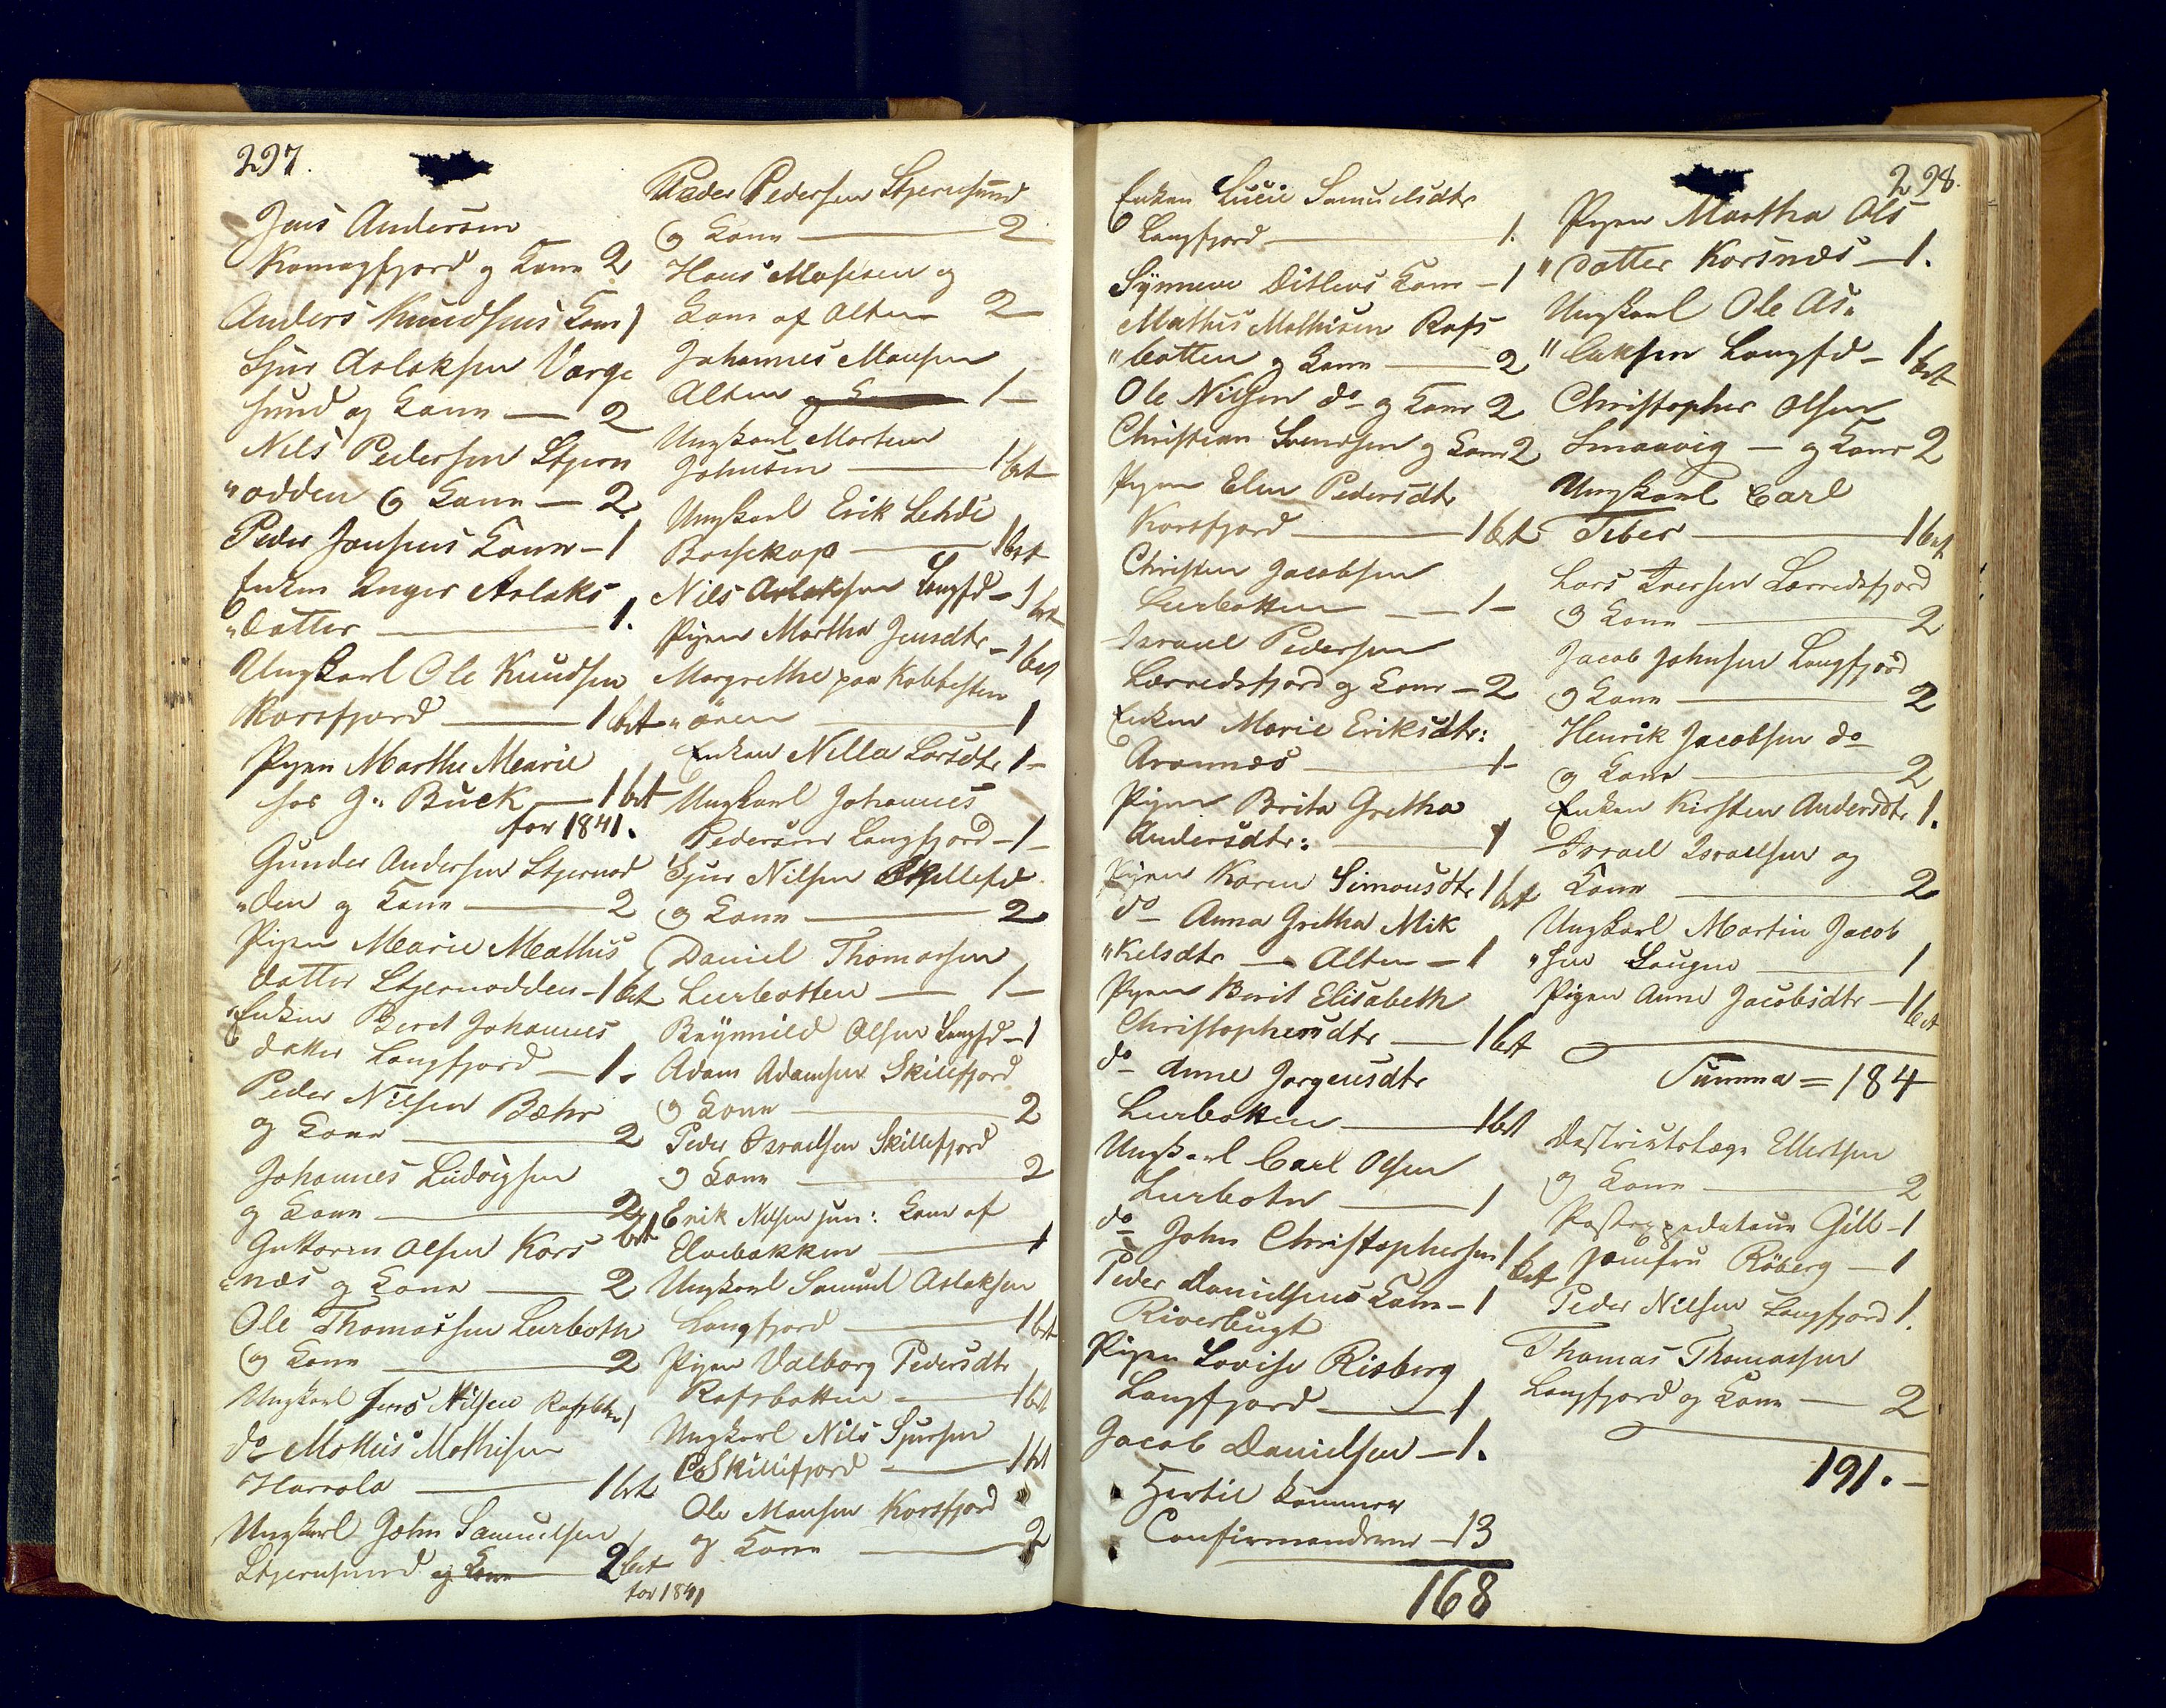 297.
Jens Andersen
Komagfjord og Kone 2
Anders Knudsens Kone 1
Sjur Aslaksen Varge
sund og Kone — 2
Nils Pedersen Stjern
"odden og Kone — 2.
Peder Jensens Kone — 1
Enken Inger Aslaks
"datter — 1.
Ungkarl Ole Knudsen
Korsfjord — 1 bet
Pigen Marthe Marie
hos G. Buck — 1 bet
for 1841.
Gunder Andersen Stjernod
"den og Kone — 2
Pigen Marie Mathis
datter Stjernodden — 1 bet
Enken Beret Johannes
datter Langfjord — 1.
Peder Nilsen Bæhr
og Kone — 2
Johannes Ludvigsen
og Kone — 2 bet
Guttorm Olsen Kors
næs og Kone — 2
Ole Thomassen Lerbotn
og Kone — 2
Ungkarl Jens Nilsen Rafsbtn 1
do Mathis Mathisen
Harrola — 1 bet
Ungkarl John Samuelsen
Stjernsund og Kone 2 bet
for 1841
Peder Pedersen Stjernsund
og Kone — 2
Hans Mathisen og
Kone af Alten 2
Johannes Monsen
Alten og K 1 —
Ungkarl Morten
Johnsen — 1 bet
Ungkarl Erik Lehdi
Bossekop — 1 bet
Nils Aslaksen Langfd — 1 bet
Pigen Martha Jensdtr — 1 bet
Margrethe paa Kobbesten
"ören — 1
Enken Nilla Larsdtr 1 —
Ungkarl Johannes
Pedersen Langfjord — 1 —
Sjur Nilsen Skillefd
og Kone — 2
Daniel Thomassen
Lerbotten — 1 —
Brynnild Olsen Langfd — 1
Adam Adamsen Skillefjord
og Kone — 2
Peder Israelsen Skillefjord
og Kone — 2
Erik Nilsen jun: Kone af
Elvebakken — 1
Ungkarl Samuel Aslaksen
Langfjord — 1 bet
Pigen Valborg Pedersdtr
Rafsbotten — 1 bet
Ungkarl Nils Sjursen
Skillefjord — 1 bet
Ole Monsen Korsfjord
og Kone — 2
298.
Enken Lucie Samuelsdtr
Langfjord — 1.
Synneve Ditlevs Kone — 1
Mathis Mathisen Rafs
"botten og Kone — 2
Ole Nilsen do og Kone 2
Christian Svendsen og Kone 2
Pigen Elen Pedersdtr
Korsfjord — 1 bet
Christen Jacobsen
Lerbotten — 1 —
Israel Pedersen
Lerredsfjord og Kone — 2
Enken Marie Eriksdtr:
Aronnæs — 1 —
Pigen Brita Gretha
Andersdtr: — 1
Pigen Karen Simonsdtr 1 bet
do Anna Gretha Mik
"kelsdtr — Alten — 1
Pigen Berit Elisabeth
Christophersdtr — 1 bet
do Anne Jørgensdtr
Lerbotten — 1 bet
Ungkarl Carl Olsen
Lerbotn — 1
do John Christophersen 1 bet
Peder Danielsens Kone — 1
Riverbugt
Pigen Lovise Risberg
Langfjord — 1
Jacob Danielsen — 1.
Hertil kommer
Confirmanderne — 13
168
Pigen Martha Ols
"datter Korsnæs — 1.
Ungkarl Ole As"
"laksen Langfd — 1 bet
Christopher Olsen
Smaavig — og Kone 2
Ungkarl Carl
Teber — 1 bet
Lars Iversen Lerredsfjord
og Kone — 2
Jacob Johnsen Langfjord
og Kone — 2
Henrik Jacobsen do
og Kone — 2
Enken Kirsten Andersdtr 1.
Israel Israelsen og
Kone — 2
Ungkarl Martin Jacob
"sen Laugen — 1
Pigen Anne Jacobsdtr — 1 bet
Summa = 184
Destriktslæge Ellertsen
og Kone — 2
Postexpediteur Gill — 1
Jomfru Röberg — 1
Peder Nilsen Langfjord 1.
Thomas Thomassen
Langfjord og Kone — 2
191. —